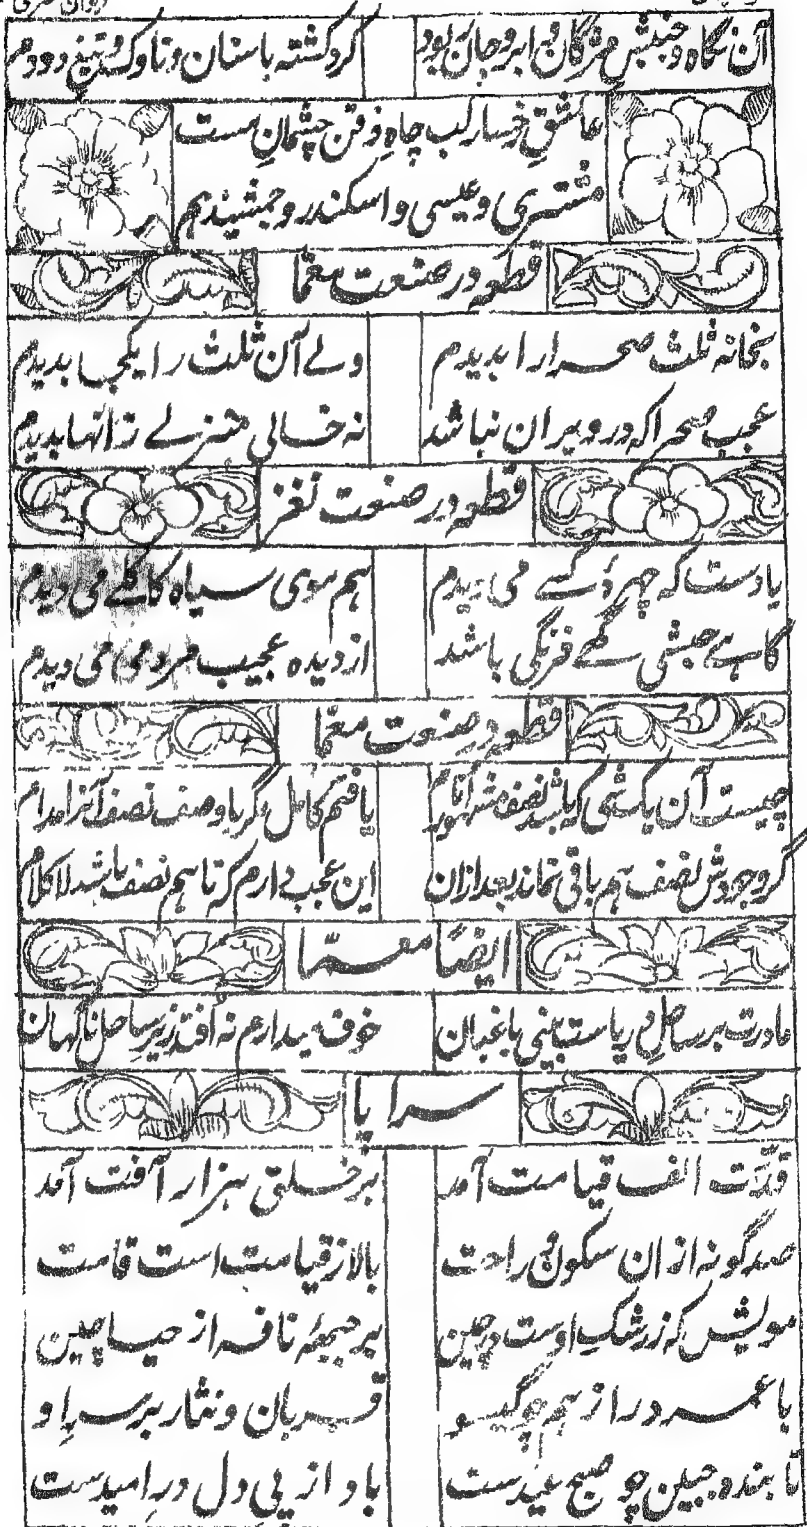 آن نگاه و جنبش مژگان و ابرو جان ربود گرد گشته باسنان و ناوک و تیغ دو دم
عاشق رخسار لب چاه ذقن چشمان هست
مشتری و عیسی و اسکندر و جمشید هم
قطعه در صنعت معمّا
بخانه ثلث صحرا را بدیدم ولے آن ثلث را یکجا بدیدم
عجب صحرا که در ویران نباشد نه خالی منزلے زانها بدیدم
قطعه در صنعت لغز
یادست که چهرهٔ کسے می دیدم هم موی سیاه کاکلے می دیدم
گاہے حبشی گہے فرنگی باشد از دیده عجیب مردمی می دیدم
قطعه در صنعت معمّا
چیست آن یک شی که باشد نصف مشهور یافتم کامل دگر با وصف نصف آنرا مدام
گر وجودش نصف هم باقی نماند بعد ازان این عجب دارم که تا هم نصف باشد لا کلام
ایضًا معمّا
مادرت بر ساحل دریاست بینی باغبان خوف میدارم نه افتد زیر ساحل ناگهان
سراپا
قدّت الف قیامت آمد بر خلق هزار آفت آمد
صد گونه ازان سکون و راحت بالا ز قیامت است قامت
مویش که ز رشک اوست در چین بر جبههٔ نافه از حیا چین
با عمر دراز هم چو گیسو قربان و نثار بر سر او
تابنده جبین چو صبح عیدست باو از پی دل در امیدست